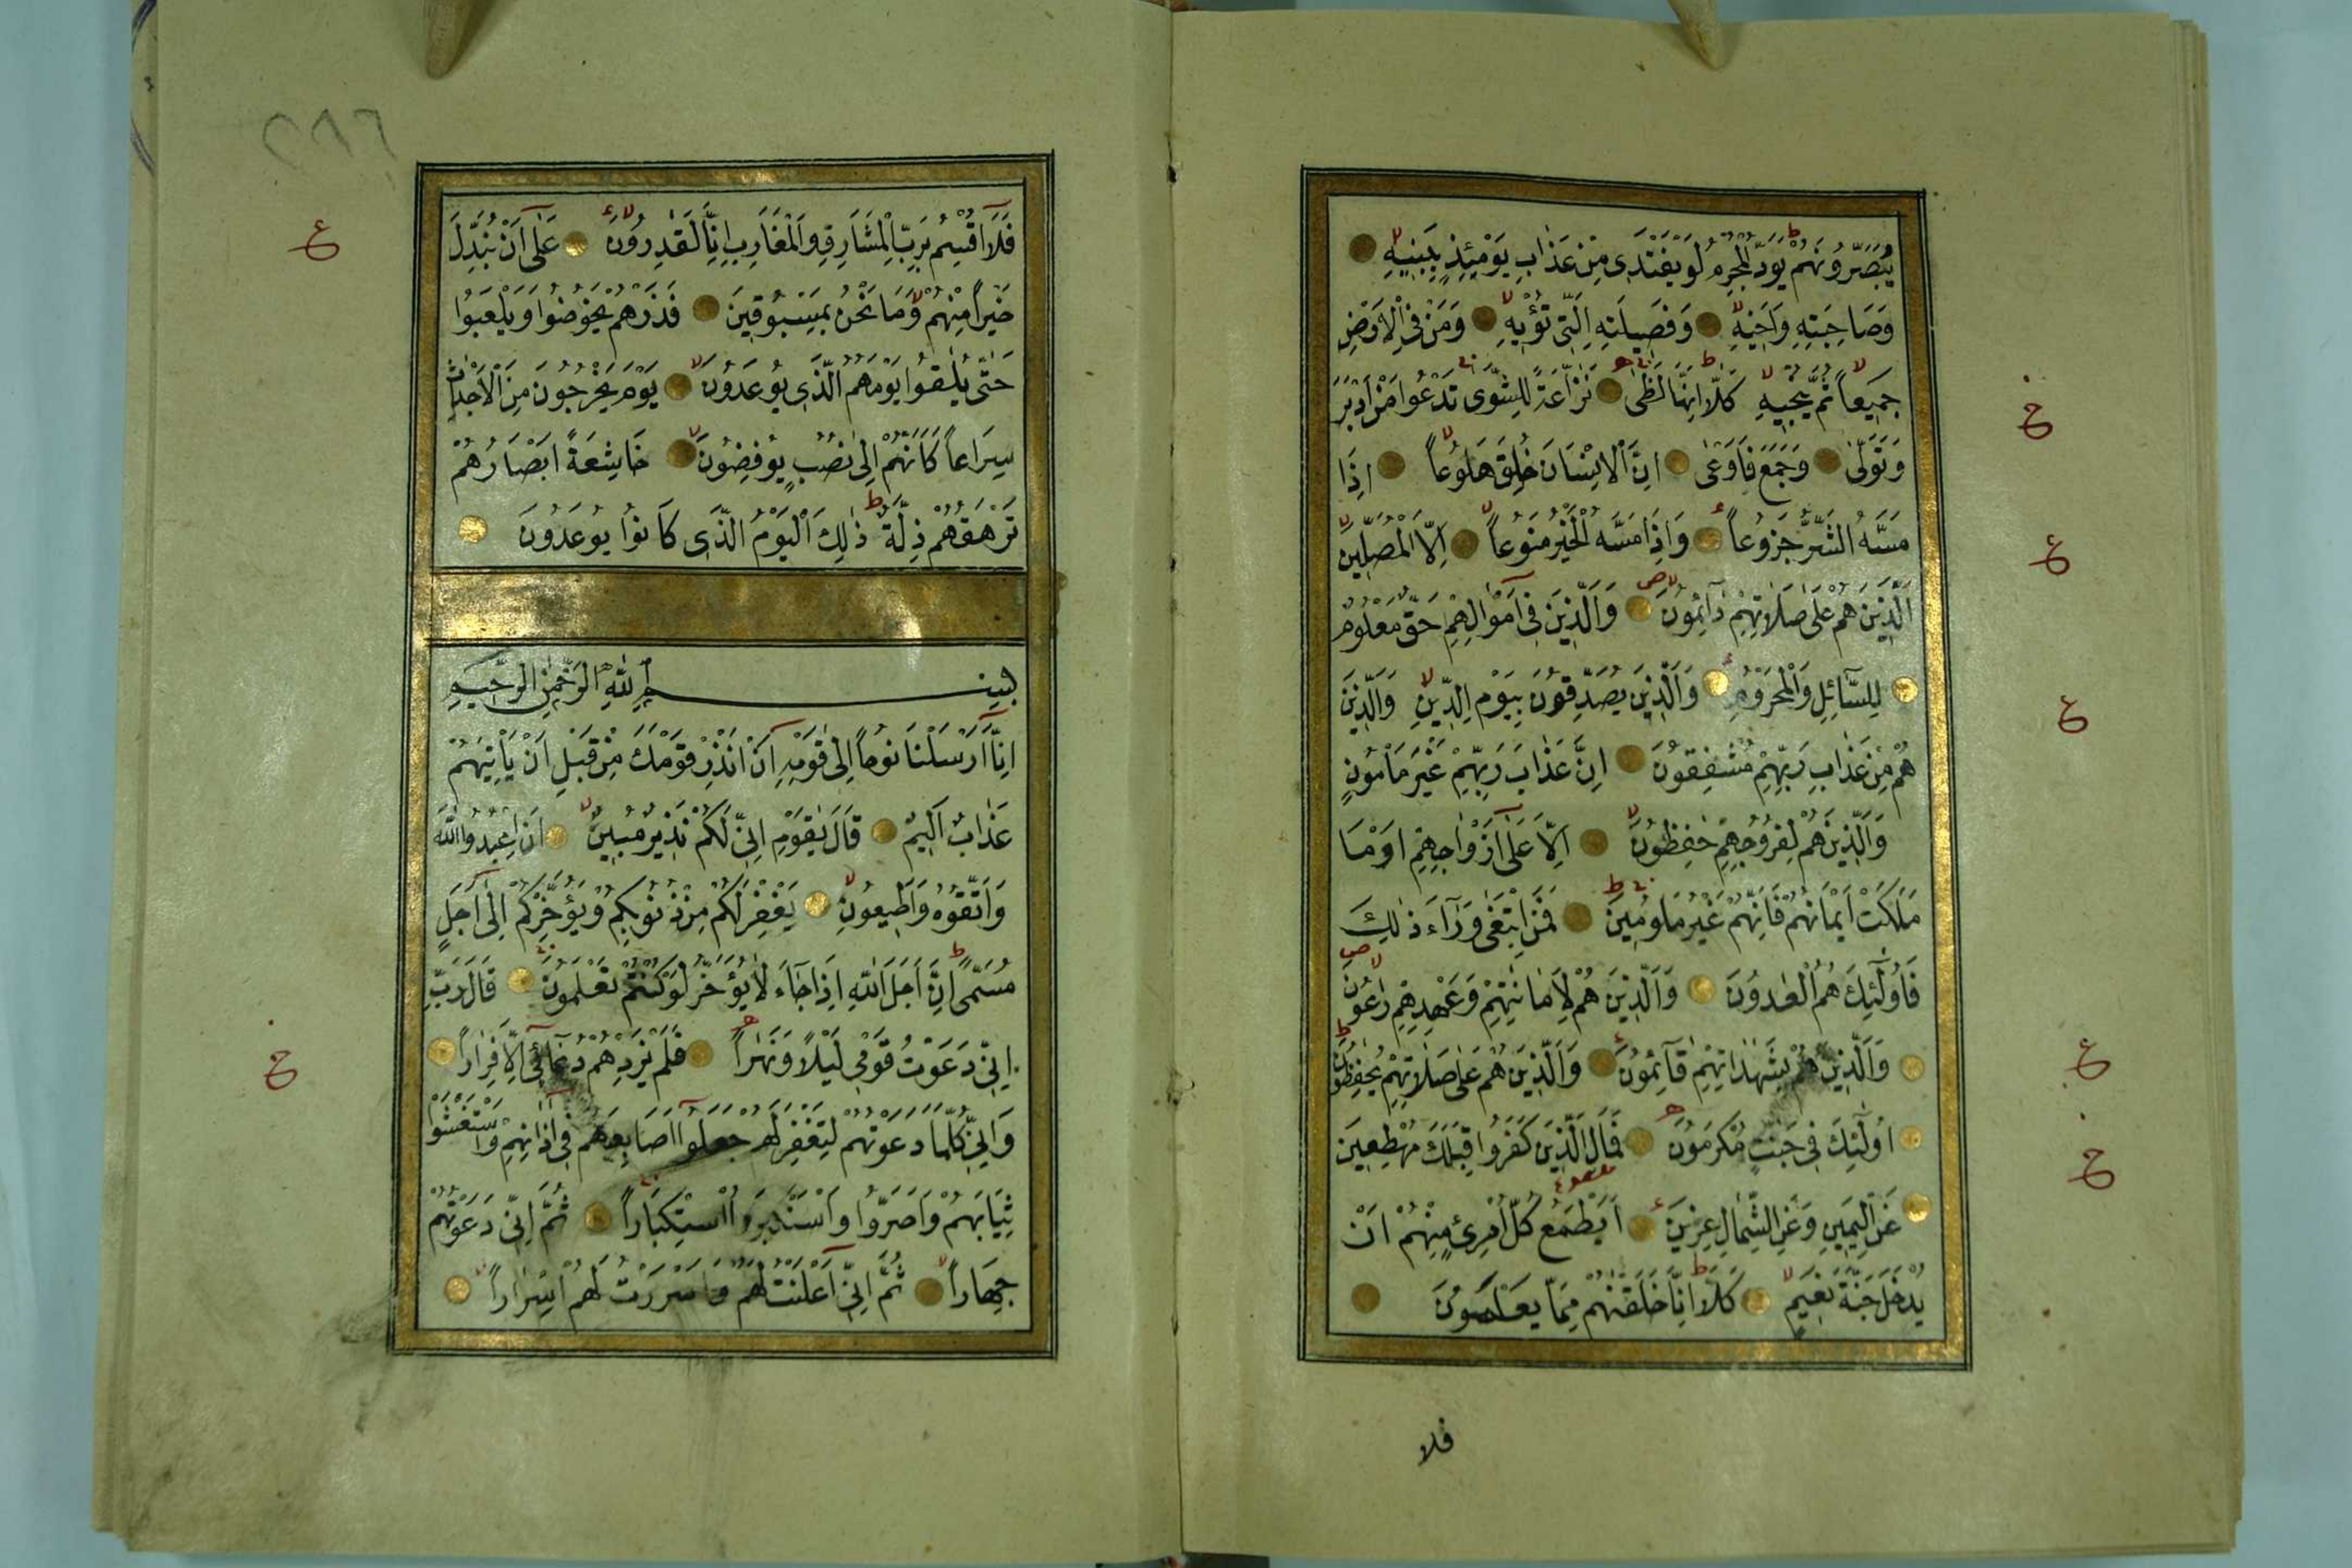 يُبَصَّرُونَهُمْ يَوَدُّ الْمُجْرِمُ لَوْ يَفْتَدِى مِنْ عَذَابِ يَوْمِئِذٍ بِبَنِيهِ
وَصَاحِبَتِهِ وَاَخِيهِ وَفَصِيلَتِهِ الَّتِى تُؤْيهِ وَمَنْ فِى الْاَرْضِ
جَمِيعاً ثُمَّ يُنْجِيهِ كَلَّا اِنَّهَا لَظٰى نَزَّاعَةً لِلشَّوٰى تَدْعُوا مَنْ اَدْبَرَ
وَتَوَلّٰى وَجَمَعَ فَاَوْعٰى اِنَّ الْاِنْسَانَ خُلِقَ هَلُوعاً اِذَا
مَسَّهُ الشَّرُّ جَزُوعاً وَاِذَا مَسَّهُ الْخَيْرُ مَنُوعاً اِلَّا الْمُصَلِّينَ
الَّذِينَ هُمْ عَلٰى صَلَاتِهِمْ دَآئِمُونَ وَالَّذِينَ فِى اَمْوَالِهِمْ حَقٌّ مَعْلُومٌ
لِلسَّآئِلِ وَالْمَحْرُومِ وَالَّذِينَ يُصَدِّقُونَ بِيَوْمِ الدِّينِ وَالَّذِينَ
هُمْ مِنْ عَذَابِ رَبِّهِمْ مُشْفِقُونَ اِنَّ عَذَابَ رَبِّهِمْ غَيْرُ مَاْمُونٍ
وَالَّذِينَ هُمْ لِفُرُوجِهِمْ حٰفِظُونَ اِلَّا عَلٰى اَزْوَاجِهِمْ اَوْ مَا
مَلَكَتْ اَيْمَانُهُمْ فَاِنَّهُمْ غَيْرُ مَلُومِينَ فَمَنِ ابْتَغٰى وَرَآءَ ذٰلِكَ
فَاُولٰٓئِكَ هُمُ الْعٰدُونَ وَالَّذِينَ هُمْ لِاَمَانٰتِهِمْ وَعَهْدِهِمْ رٰعُونَ
وَالَّذِينَ هُمْ بِشَهٰدَاتِهِمْ قَآئِمُونَ وَالَّذِينَ هُمْ عَلٰى صَلَاتِهِمْ يُحٰفِظُونَ
اُولٰٓئِكَ فِى جَنّٰتٍ مُكْرَمُونَ فَمَالِ الَّذِينَ كَفَرُوا قِبَلَكَ مُهْطِعِينَ
عَنِ الْيَمِينِ وَعَنِ الشِّمَالِ عِزِينَ اَيَطْمَعُ كُلُّ امْرِئٍ مِنْهُمْ اَنْ
يُدْخَلَ جَنَّةَ نَعِيمٍ كَلَّا اِنَّا خَلَقْنٰهُمْ مِمَّا يَعْلَمُونَ
فلا
٢٨٦
فَلَآ اُقْسِمُ بِرَبِّ الْمَشَارِقِ وَالْمَغَارِبِ اِنَّا لَقٰدِرُونَ عَلٰٓى اَنْ نُبَدِّلَ
خَيْراً مِنْهُمْ وَمَا نَحْنُ بِمَسْبُوقِينَ فَذَرْهُمْ يَخُوضُوا وَيَلْعَبُوا
حَتّٰى يُلٰقُوا يَوْمَهُمُ الَّذِى يُوعَدُونَ يَوْمَ يَخْرُجُونَ مِنَ الْاَجْدَاثِ
سِرَاعاً كَاَنَّهُمْ اِلٰى نُصُبٍ يُوفِضُونَ خَاشِعَةً اَبْصَارُهُمْ
تَرْهَقُهُمْ ذِلَّةٌ ذٰلِكَ الْيَوْمُ الَّذِى كَانُوا يُوعَدُونَ
بِسْمِ اللّٰهِ الرَّحْمٰنِ الرَّحِيمِ
اِنَّآ اَرْسَلْنَا نُوحاً اِلٰى قَوْمِهِ اَنْ اَنْذِرْ قَوْمَكَ مِنْ قَبْلِ اَنْ يَاْتِيَهُمْ
عَذَابٌ اَلِيمٌ قَالَ يٰقَوْمِ اِنِّى لَكُمْ نَذِيرٌ مُبِينٌ اَنِ اعْبُدُوا اللّٰهَ
وَاتَّقُوهُ وَاَطِيعُونِ يَغْفِرْ لَكُمْ مِنْ ذُنُوبِكُمْ وَيُؤَخِّرْكُمْ اِلٰٓى اَجَلٍ
مُسَمًّى اِنَّ اَجَلَ اللّٰهِ اِذَا جَآءَ لَا يُؤَخَّرُ لَوْ كُنْتُمْ تَعْلَمُونَ قَالَ رَبِّ
اِنِّى دَعَوْتُ قَوْمِى لَيْلًا وَنَهَاراً فَلَمْ يَزِدْهُمْ دُعَآئِى اِلَّا فِرَاراً
وَاِنِّى كُلَّمَا دَعَوْتُهُمْ لِتَغْفِرَ لَهُمْ جَعَلُوٓا اَصَابِعَهُمْ فِى اٰذَانِهِمْ وَاسْتَغْشَوْا
ثِيَابَهُمْ وَاَصَرُّوا وَاسْتَكْبَرُوا اسْتِكْبَاراً ثُمَّ اِنِّى دَعَوْتُهُمْ
جِهَاراً ثُمَّ اِنِّى اَعْلَنْتُ لَهُمْ وَاَسْرَرْتُ لَهُمْ اِسْرَاراً